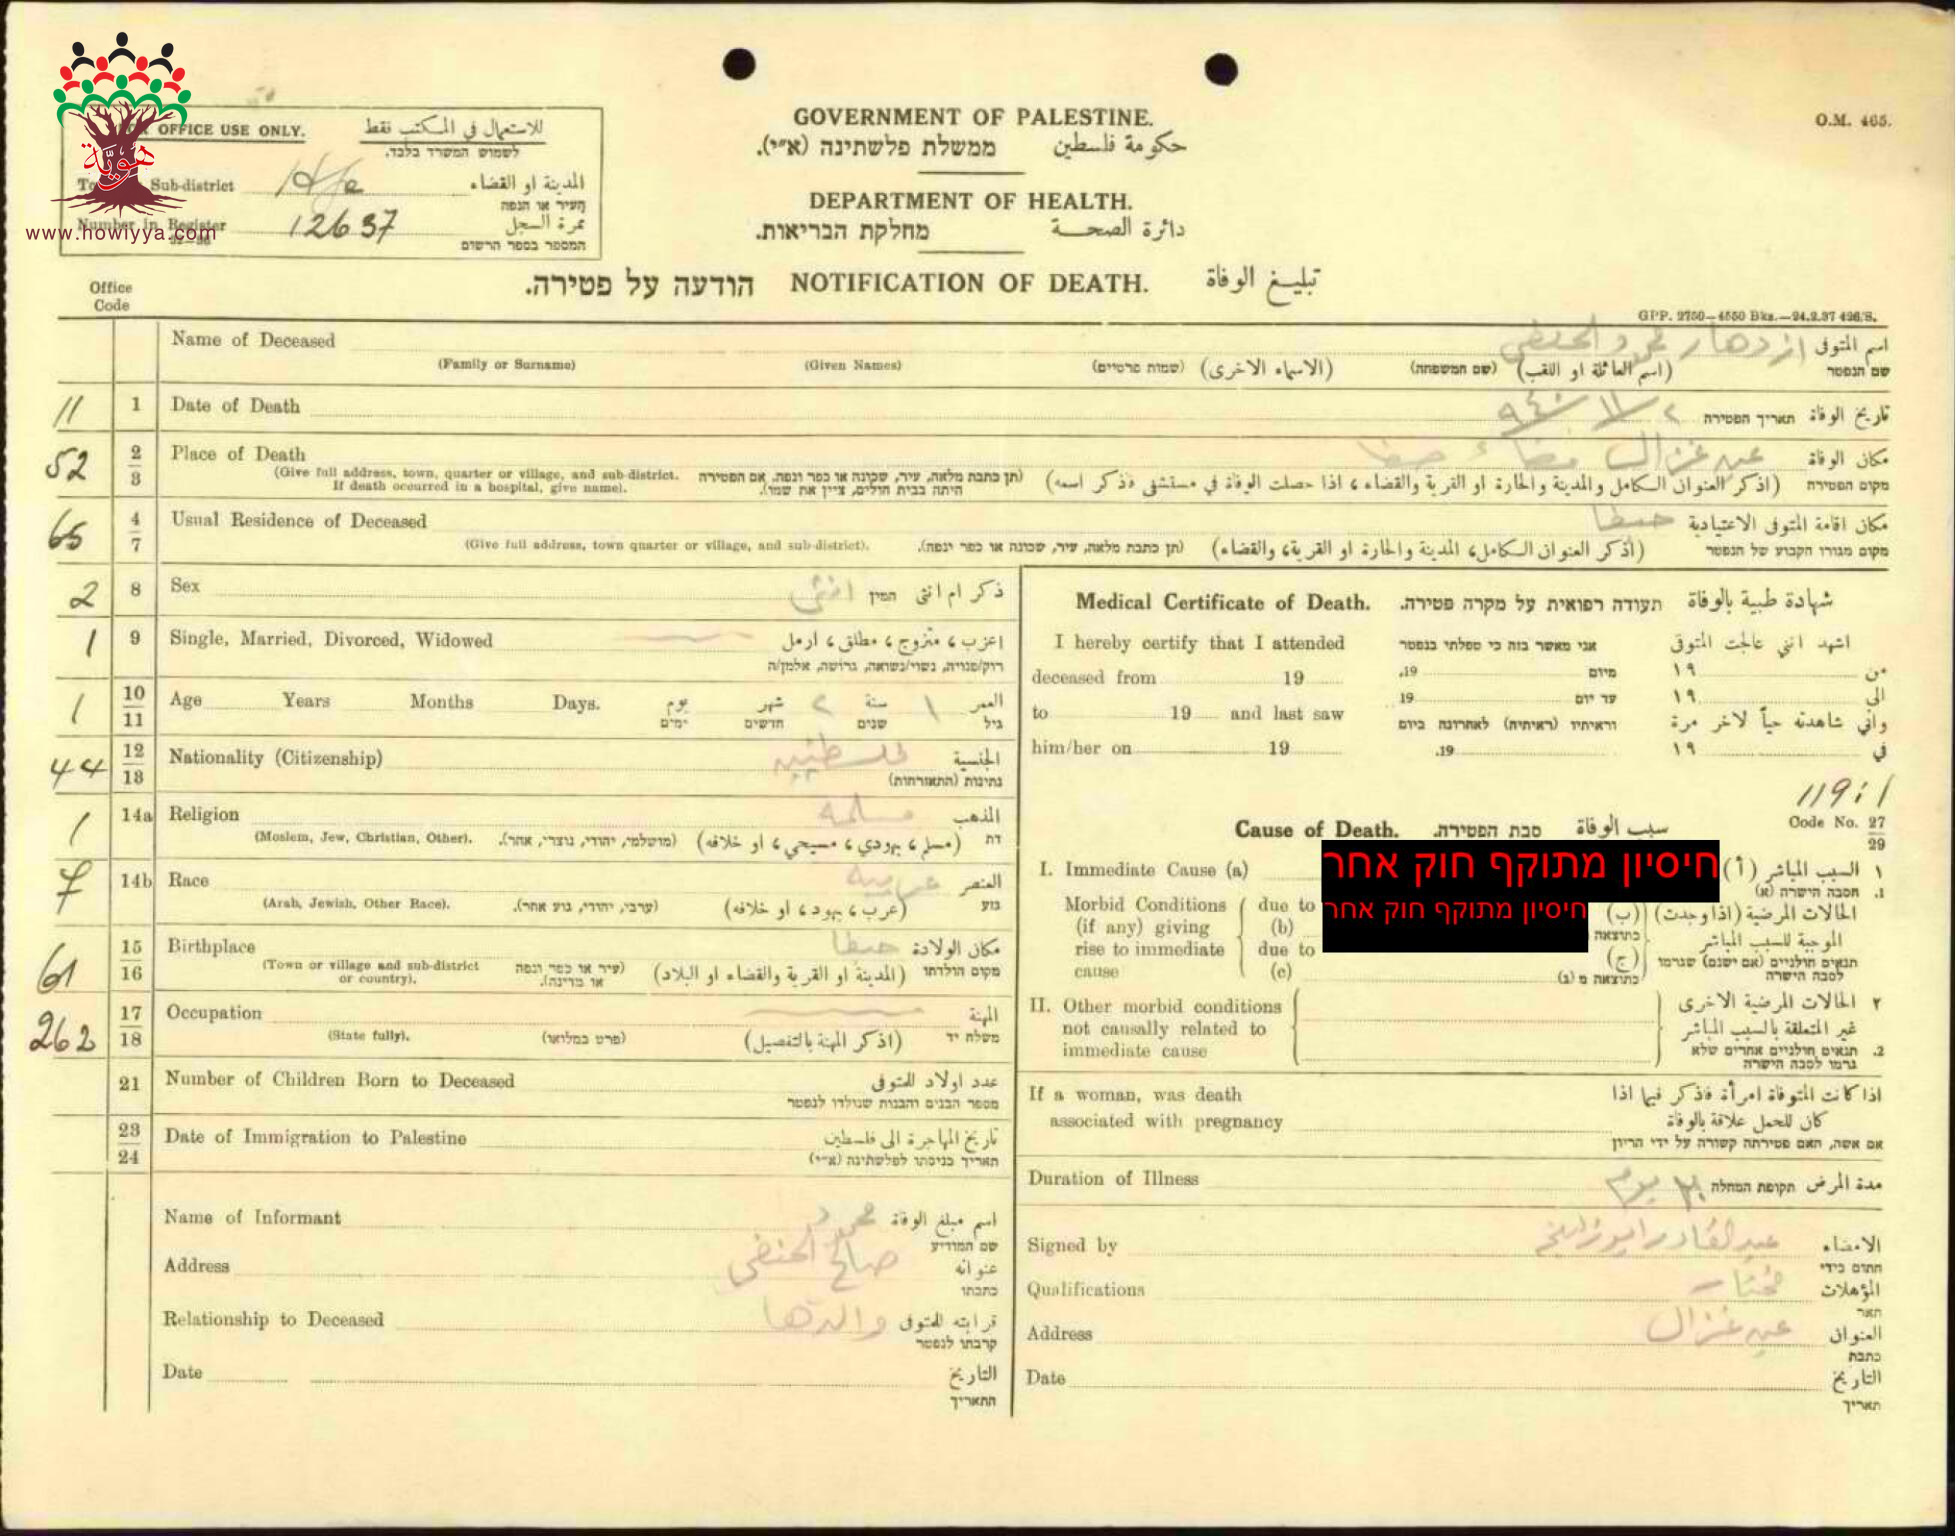 هوية
www.howiyya.com
OFFICE USE ONLY. للاستعمال في المكتب فقط
לשמוש המשרד בלבד.
Sub-district المدينة او القضاء
העיר או הנפה
Number in Register 12637 نمرة السجل
המספר בספר הרשום
GOVERNMENT OF PALESTINE.
ממשלת פלשתינה (א״י). حكومة فلسطين
DEPARTMENT OF HEALTH.
מחלקת הבריאות. دائرة الصحة
O.M. 465.
הודעה על פטירה. NOTIFICATION OF DEATH. تبليغ الوفاة
Office
Code
GPP. 2750—4550 Bks.—24.2.37 426/S.
Name of Deceased ازدهار محمود الحنفي اسم المتوفى
(Family or Surname) (Given Names) (שמות פרטיים) (الاسماء الاخرى) (שם המשפחה) (اسم العائلة او اللقب) שם הנפטר
11 1 Date of Death ٢ / ١١ / ٩٤٠ תאריך הפטירה تاريخ الوفاة
52 2 3 Place of Death عين غزال قضاء حيفا مكان الوفاة
(Give full address, town, quarter or village, and sub-district. (תן כתבת מלאה, עיר, שכונה או כפר ונפה. אם הפטירה (اذكر العنوان الكامل والمدينة والحارة او القرية والقضاء ، اذا حصلت الوفاة في مستشفى فاذكر اسمه) מקום הפטירה
If death occurred in a hospital, give name). היתה בבית חולים, ציין את שמו).
65 4 7 Usual Residence of Deceased حيفا مكان اقامة المتوفى الاعتيادية
(Give full address, town quarter or village, and sub-district). (תן כתבת מלאה, עיר, שכונה או כפר ונפה). (اذكر العنوان الكامل، المدينة والحارة او القرية، والقضاء) מקום מגורו הקבוע של הנפטר
2 8 Sex انثى המין ذكر ام انثى
1 9 Single, Married, Divorced, Widowed اعزب ، متزوج ، مطلق ، ارمل
רוק/פנויה, נשוי/נשואה, גרוש/ה, אלמן/ה
1 10 11 Age Years Months Days. يوم شهر ٢ سنة ١ العمر
ימים חדשים שנים גיל
44 12 13 Nationality (Citizenship) فلسطينيه الجنسية
נתינות (התאזרחות)
1 14a Religion مسلمه المذهب
(Moslem, Jew, Christian, Other). (מושלמי, יהודי, נוצרי, אחר). (مسلم ، يهودي ، مسيحي ، او خلافه) דת
7 14b Race عربيه العنصر
(Arab, Jewish, Other Race). (ערבי, יהודי, גזע אחר). (عرب ، يهود ، او خلافه) גזע
61 15 16 Birthplace حيفا مكان الولادة
(Town or village and sub-district (עיר או כפר ונפה (المدينة او القرية والقضاء او البلاد) מקום הולדתו
or country). או מדינה).
262 17 18 Occupation المهنة
(State fully). (פרט במלואו) (اذكر المهنة بالتفصيل) משלח יד
21 Number of Children Born to Deceased عدد اولاد للمتوفى
מספר הבנים והבנות שנולדו לנפטר
23 24 Date of Immigration to Palestine تاريخ المهاجرة الى فلسطين
תאריך כניסתו לפלשתינה (א״י)
Name of Informant محمود اسم مبلغ الوفاة
שם המודיע
Address صالح الحنفي عنوانه
כתבתו
Relationship to Deceased والدها قرابته للمتوفى
קרבתו לנפטר
Date التاريخ
התאריך
Medical Certificate of Death. תעודה רפואית על מקרה פטירה. شهادة طبية بالوفاة
I hereby certify that I attended אני מאשר בזה כי טפלתי בנפטר اشهد انني عالجت المتوفى
deceased from 19 מיום 19. من ١٩
to 19 and last saw עד יום 19 الى ١٩
וראיתיו (ראיתיה) לאחרונה ביום واني شاهدته حياً لاخر مرة
him/her on 19 19. في ١٩
Code No. 27 29
Cause of Death. סבת הפטירה. سبب الوفاة
I. Immediate Cause (a) חיסיון מתוקף חוק אחר (أ) السبب المباشر ١
הסבה הישרה (א) 1.
Morbid Conditions due to חיסיון מתוקף חוק אחר (ب) الحالات المرضية (اذا وجدت)
(if any) giving (b) כתוצאה الموجبة للسبب المباشر
rise to immediate due to (ج) תנאים חולניים (אם ישנם) שגרמו
cause (c) כתוצאה מ (ג) לסבה הישרה
II. Other morbid conditions الحالات المرضية الاخرى ٢
not causally related to غير المتعلقة بالسبب المباشر
immediate cause תנאים חולניים אחרים שלא 2.
גרמו לסבה הישרה
If a woman, was death اذا كانت المتوفاة امرأة فاذكر فيما اذا
associated with pregnancy كان للحمل علاقة بالوفاة
אם אשה, האם פטירתה קשורה על ידי הריון
Duration of Illness يوم תקופת המחלה مدة المرض
Signed by عبد القادر الامضاء
חתום בידי
Qualifications مختار المؤهلات
תאר
Address عين غزال العنوان
כתבת
Date التاريخ
תאריך